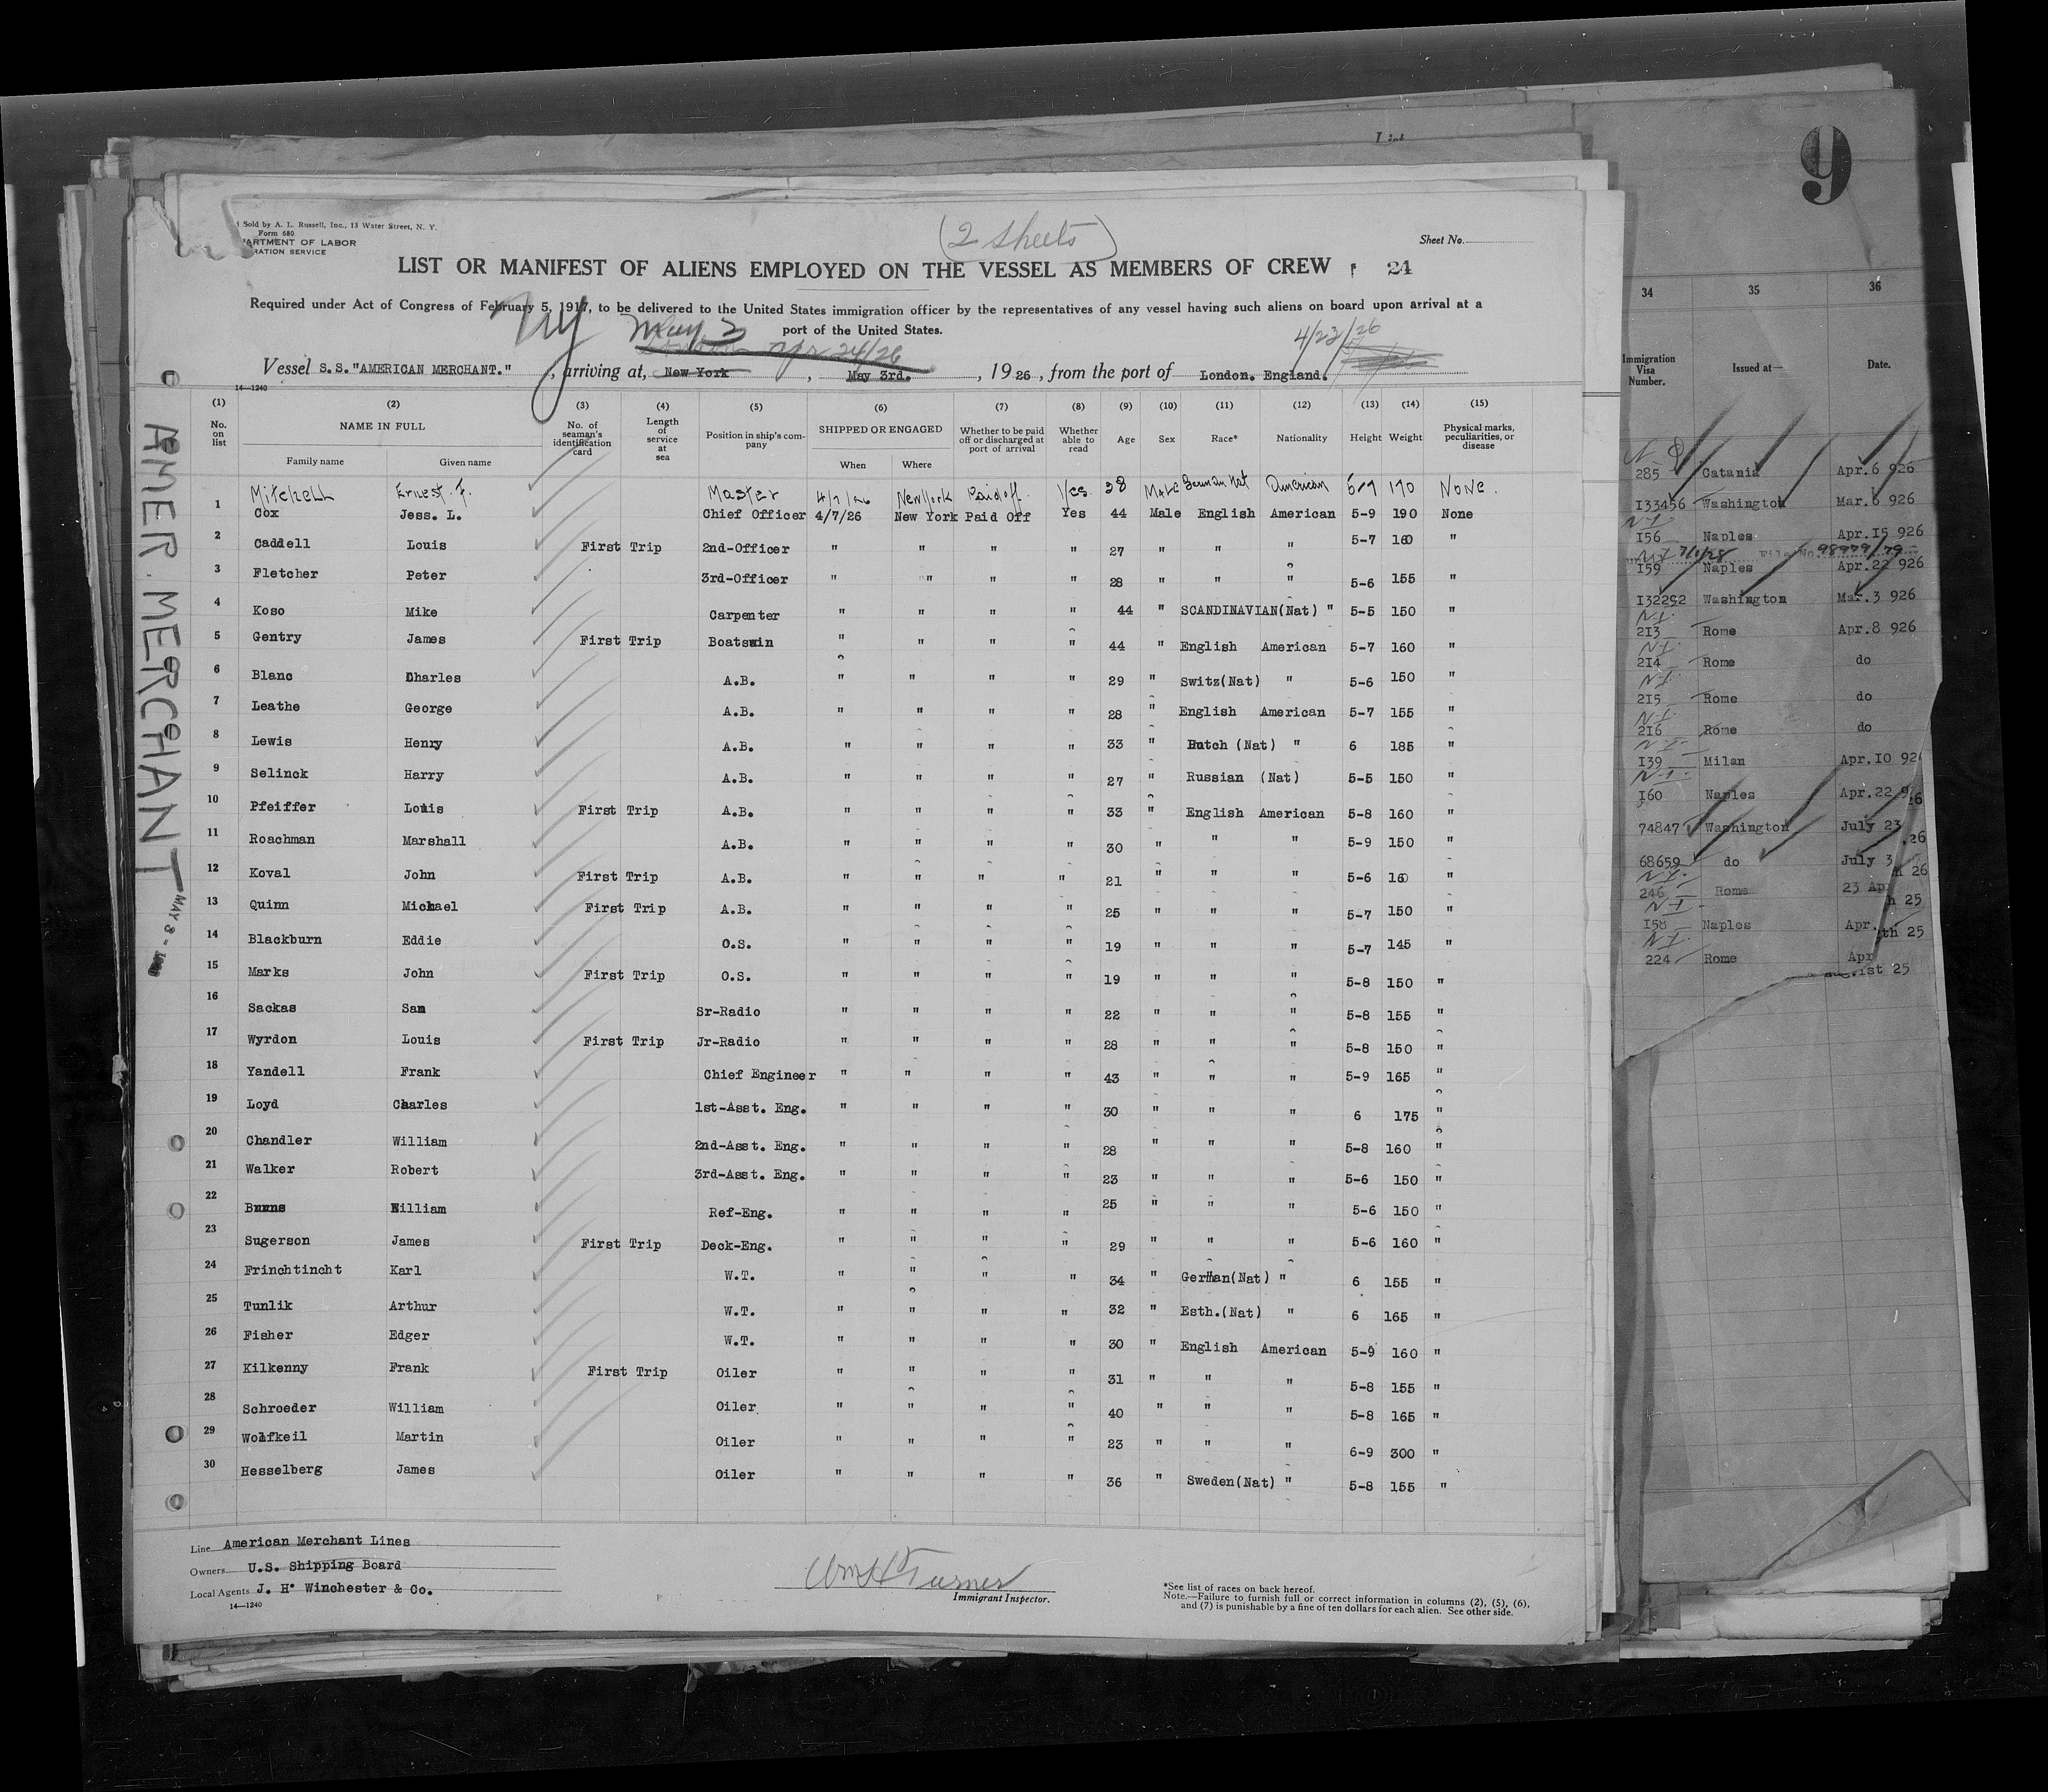 9
(2 sheets)
Sold by A. L. Russell, Inc., 13 Water Street, N. Y.
Form 680
ARTMENT OF LABOR
RATION SERVICE
Sheet No.
LIST OR MANIFEST OF ALIENS EMPLOYED ON THE VESSEL AS MEMBERS OF CREW 24
Required under Act of Congress of February 5, 1917, to be delivered to the United States immigration officer by the representatives of any vessel having such aliens on board upon arrival at a
port of the United States.
NY May 3
London Apr 24/26
4/23/26
Vessel S.S."AMERICAN MERCHANT.", arriving at, New York, May 3rd., 1926, from the port of London. England.
14—1240
(1) (2) (3) (4) (5) (6) (7) (8) (9) (10) (11) (12) (13) (14) (15)
No. on list NAME IN FULL No. of seaman's identification card Length of service at sea Position in ship's company SHIPPED OR ENGAGED Whether to be paid off or discharged at port of arrival Whether able to read Age Sex Race* Nationality Height Weight Physical marks, peculiarities, or disease
Family name Given name When Where
Mitchell Ernest F. Master 4/7/26 New York Paid off Yes. 38 Male German Nat American 5-7 170 None.
1 Cox Jess. L. Chief Officer 4/7/26 New York Paid Off Yes 44 Male English American 5-9 190 None
2 Caddell Louis First Trip 2nd-Officer " " " " 27 " " " 5-7 160 "
3 Fletcher Peter 3rd-Officer " " " " 28 " " " 5-6 155 "
4 Koso Mike Carpenter " " " " 44 " SCANDINAVIAN(Nat) " 5-5 150 "
5 Gentry James First Trip Boatswin " " " " 44 " English American 5-7 160 "
6 Blanc Charles A.B. " " " " 29 " Switz(Nat) " 5-6 150 "
7 Leathe George A.B. " " " " 28 " English American 5-7 155 "
8 Lewis Henry A.B. " " " " 33 " Dutch (Nat) " 6 185 "
9 Selinck Harry A.B. " " " " 27 " Russian (Nat) 5-5 150 "
10 Pfeiffer Louis First Trip A.B. " " " " 33 " English American 5-8 160 "
11 Roachman Marshall A.B. " " " " 30 " " " 5-9 150 "
12 Koval John First Trip A.B. " " " " 21 " " " 5-6 160 "
13 Quinn Michael First Trip A.B. " " " " 25 " " " 5-7 150 "
14 Blackburn Eddie O.S. " " " " 19 " " " 5-7 145 "
15 Marks John First Trip O.S. " " " " 19 " " " 5-8 150 "
16 Sackas Sam Sr-Radio " " " " 22 " " " 5-8 155 "
17 Wyrdon Louis First Trip Jr-Radio " " " " 28 " " " 5-8 150 "
18 Yandell Frank Chief Engineer " " " " 43 " " " 5-9 165 "
19 Loyd Charles 1st-Asst. Eng. " " " " 30 " " " 6 175 "
20 Chandler William 2nd-Asst. Eng. " " " " 28 " " " 5-8 160 "
21 Walker Robert 3rd-Asst. Eng. " " " " 23 " " " 5-6 150 "
22 Burns William Ref-Eng. " " " " 25 " " " 5-6 150 "
23 Sugerson James First Trip Deck-Eng. " " " " 29 " " " 5-6 160 "
24 Frinchtincht Karl W.T. " " " " 34 " German(Nat) " 6 155 "
25 Tunlik Arthur W.T. " " " " 32 " Esth.(Nat) " 6 165 "
26 Fisher Edger W.T. " " " " 30 " English American 5-9 160 "
27 Kilkenny Frank First Trip Oiler " " " " 31 " " " 5-8 155 "
28 Schroeder William Oiler " " " " 40 " " " 5-8 165 "
29 Wolfkeil Martin Oiler " " " " 23 " " " 6-9 300 "
30 Hesselberg James Oiler " " " " 36 " Sweden(Nat) " 5-8 155 "
Line American Merchant Lines
Owners U.S. Shipping Board
Local Agents J. H. Winchester & Co.
14—1240
Wm H Turner
Immigrant Inspector.
*See list of races on back hereof.
Note.—Failure to furnish full or correct information in columns (2), (5), (6),
and (7) is punishable by a fine of ten dollars for each alien. See other side.
AMER. MERCHANT MAY 3 -
34 35 36
Immigration Visa Number. Issued at— Date.
285 Catania Apr.6 926
I33456 Washington Mar.6 926
NI
I56 Naples Apr.I5 926
7/1/28 File No. 98979/79
I59 Naples Apr.22 926
I32292 Washington Mar.3 926
NI
2I3 Rome Apr.8 926
NI
2I4 Rome do
NI
2I5 Rome do
NI
2I6 Rome do
NI
I39 Milan Apr.IO 92
NI
I60 Naples Apr.22 9
26
74847 Washington July 23
.26
68659 do July 3
26
NI
246 Rome 23 Ap
h 25
NI
I58 Naples Apr.
th 25
NI
224 Rome Apr
1st 25